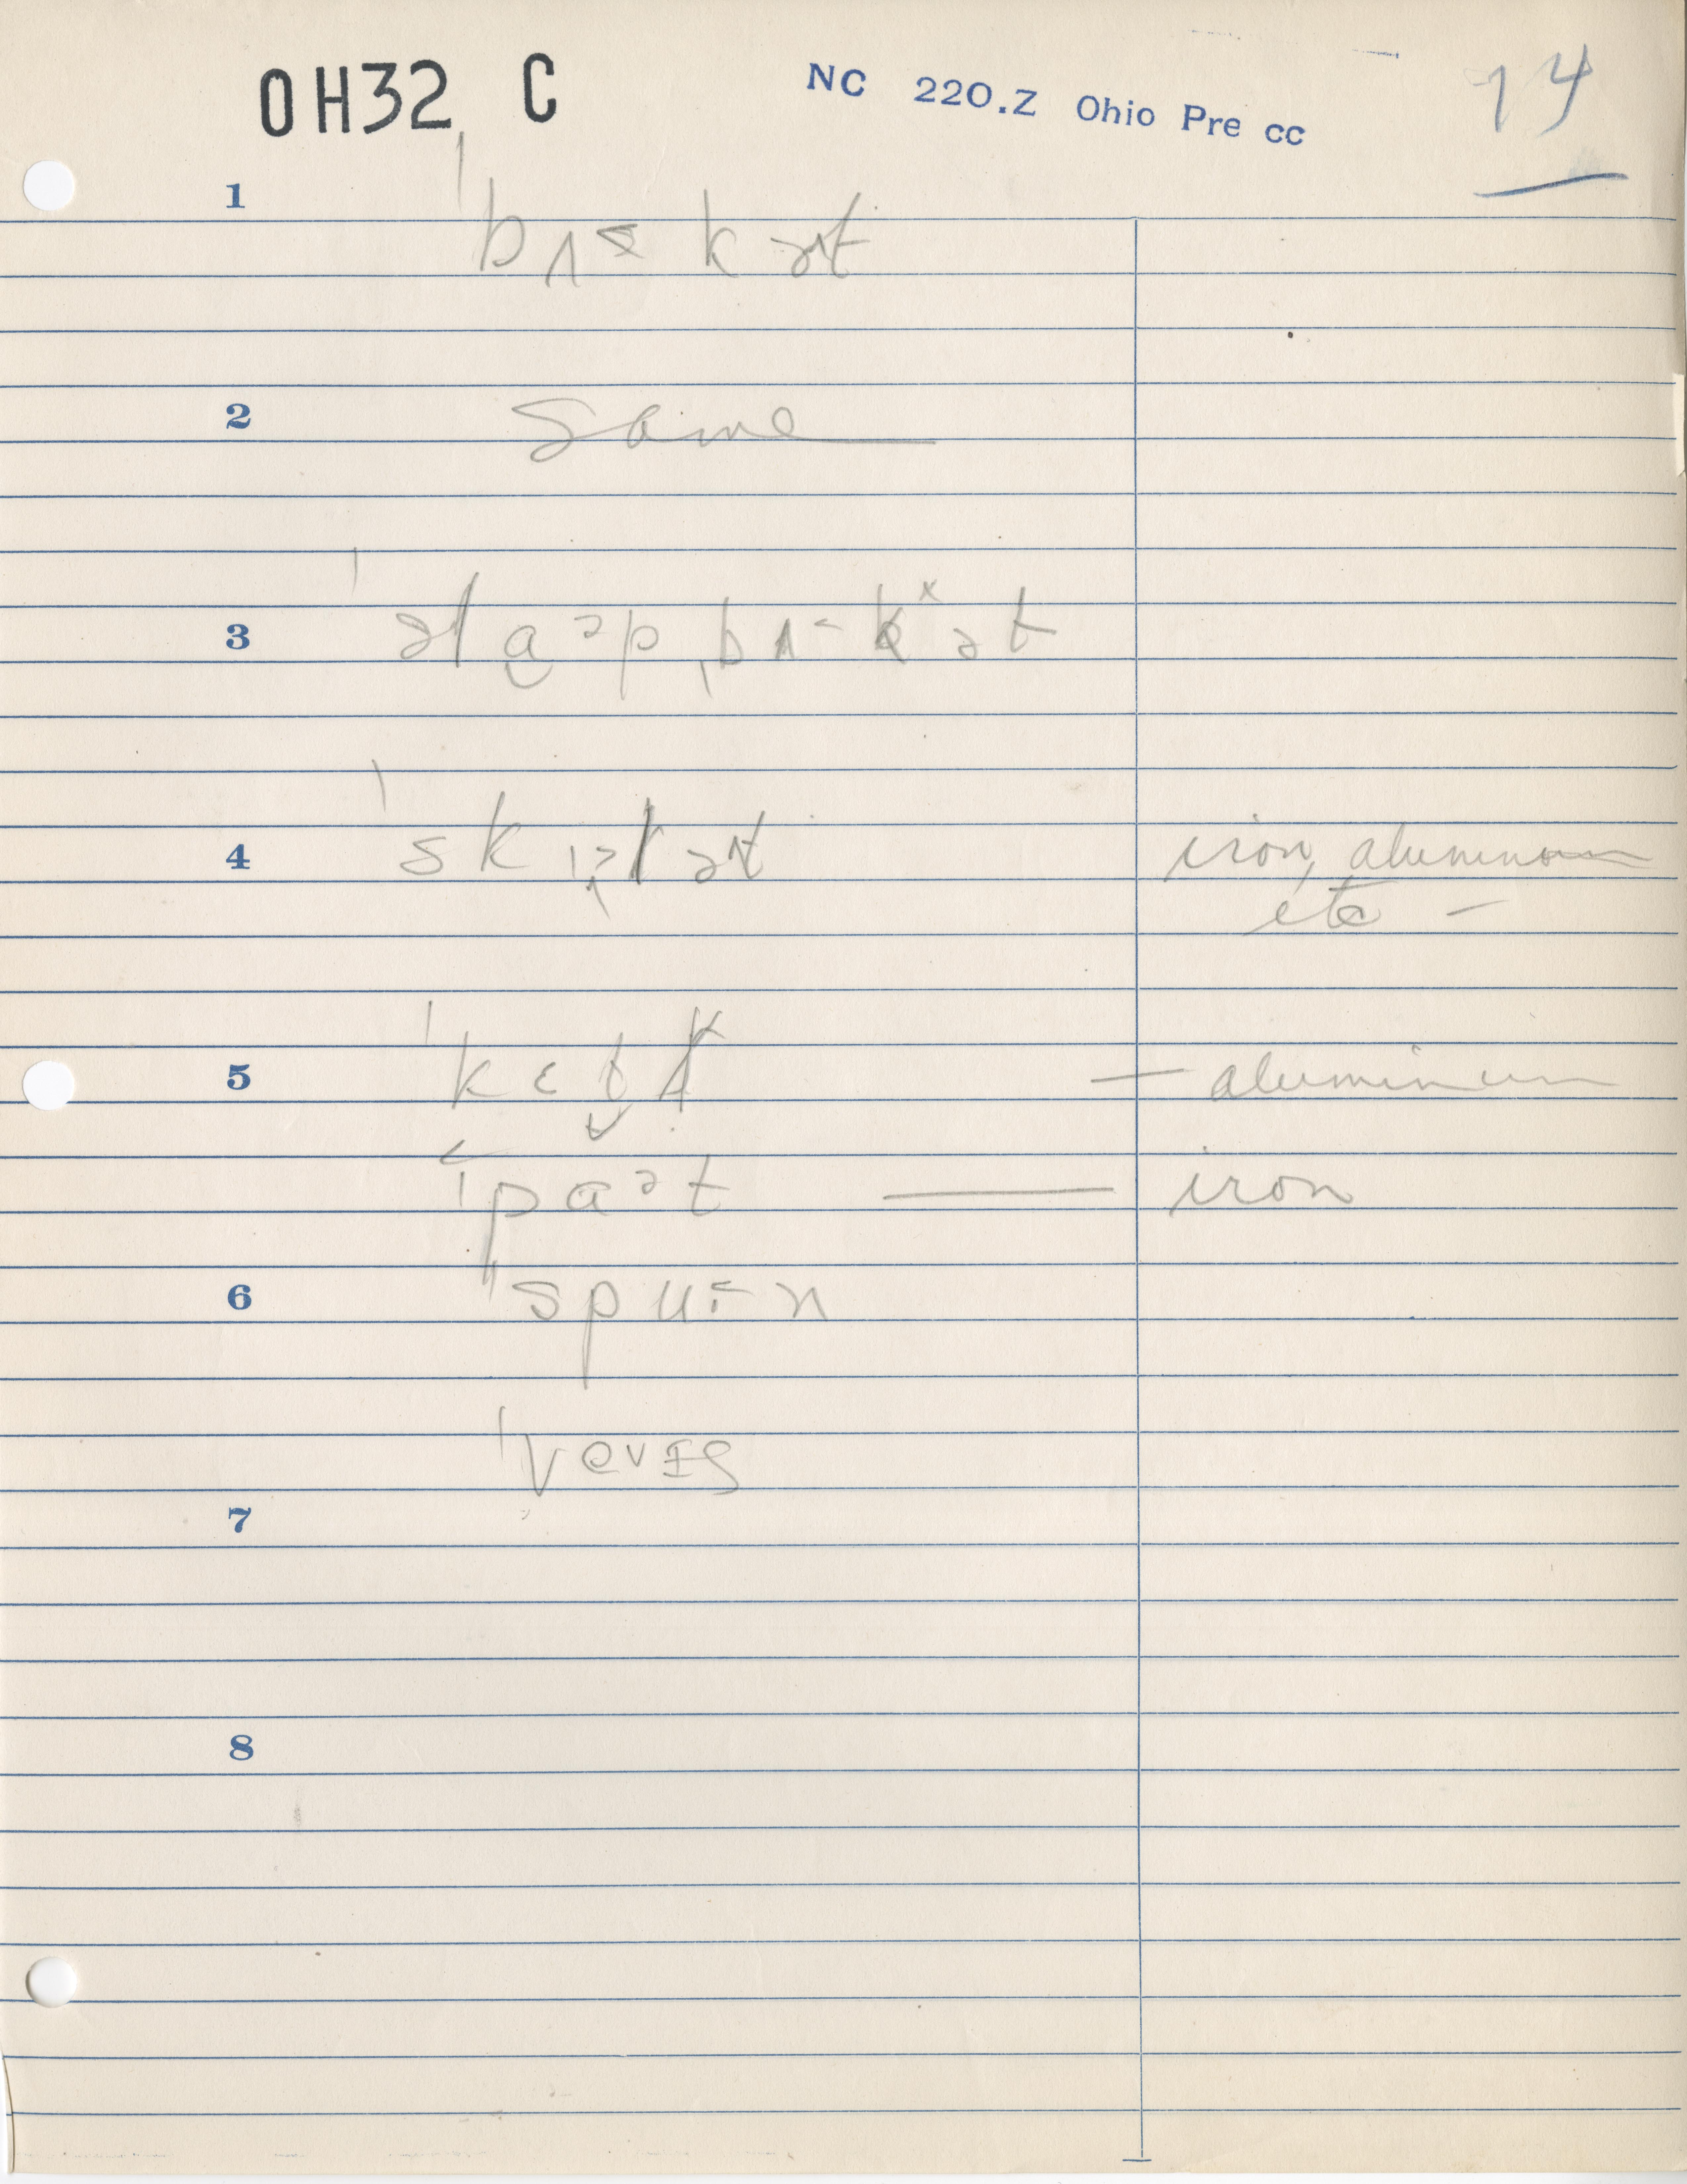 OH32 C
NC 220.Z Ohio Pre cc
74
1
ˈbʌ˂kət
2
Same
3
ˈslɑᵊpˌbʌ˂kˣət
4
ˈskɪᵊlət
iron, aluminum
etc –
5
ˈkɛt̬ɫ — aluminum
ˈpɑᵊt — iron
6
ˈspu˂n
ˈveɪvɪs
7
8